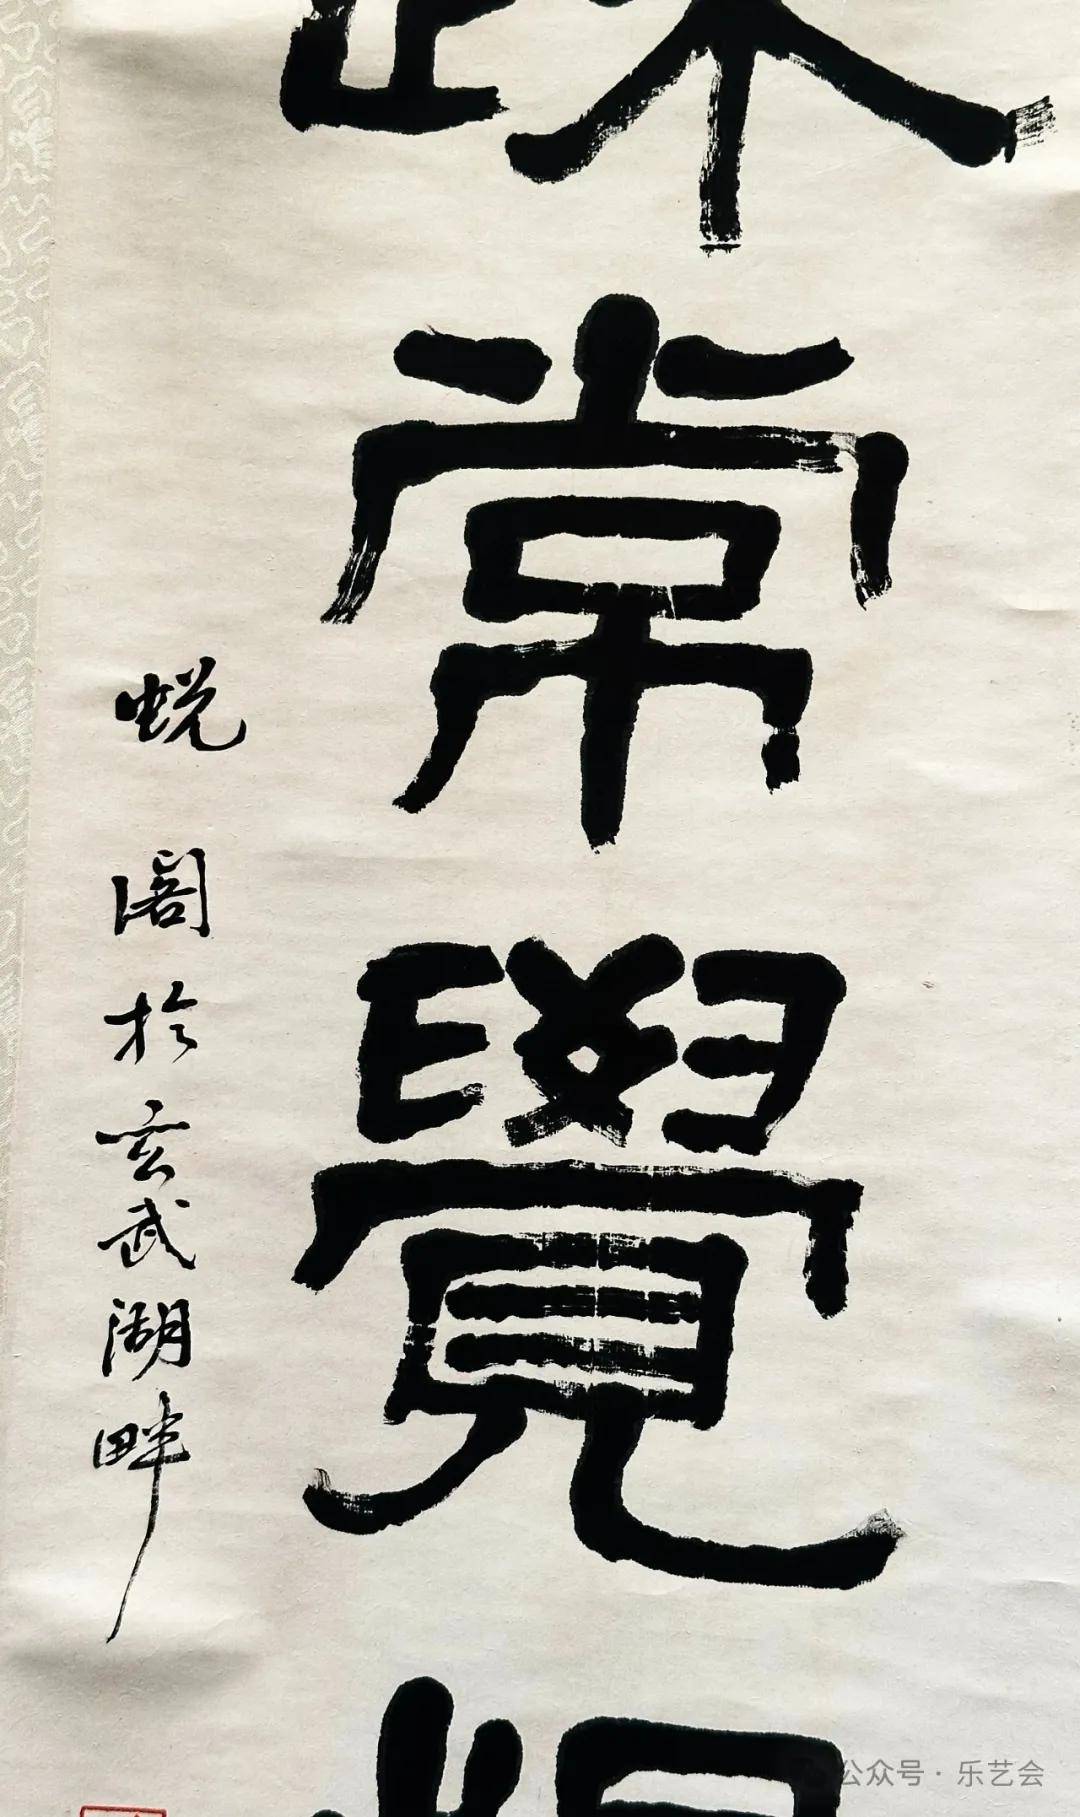 常覺
蜕閣於玄武湖畔
公众号·乐艺会